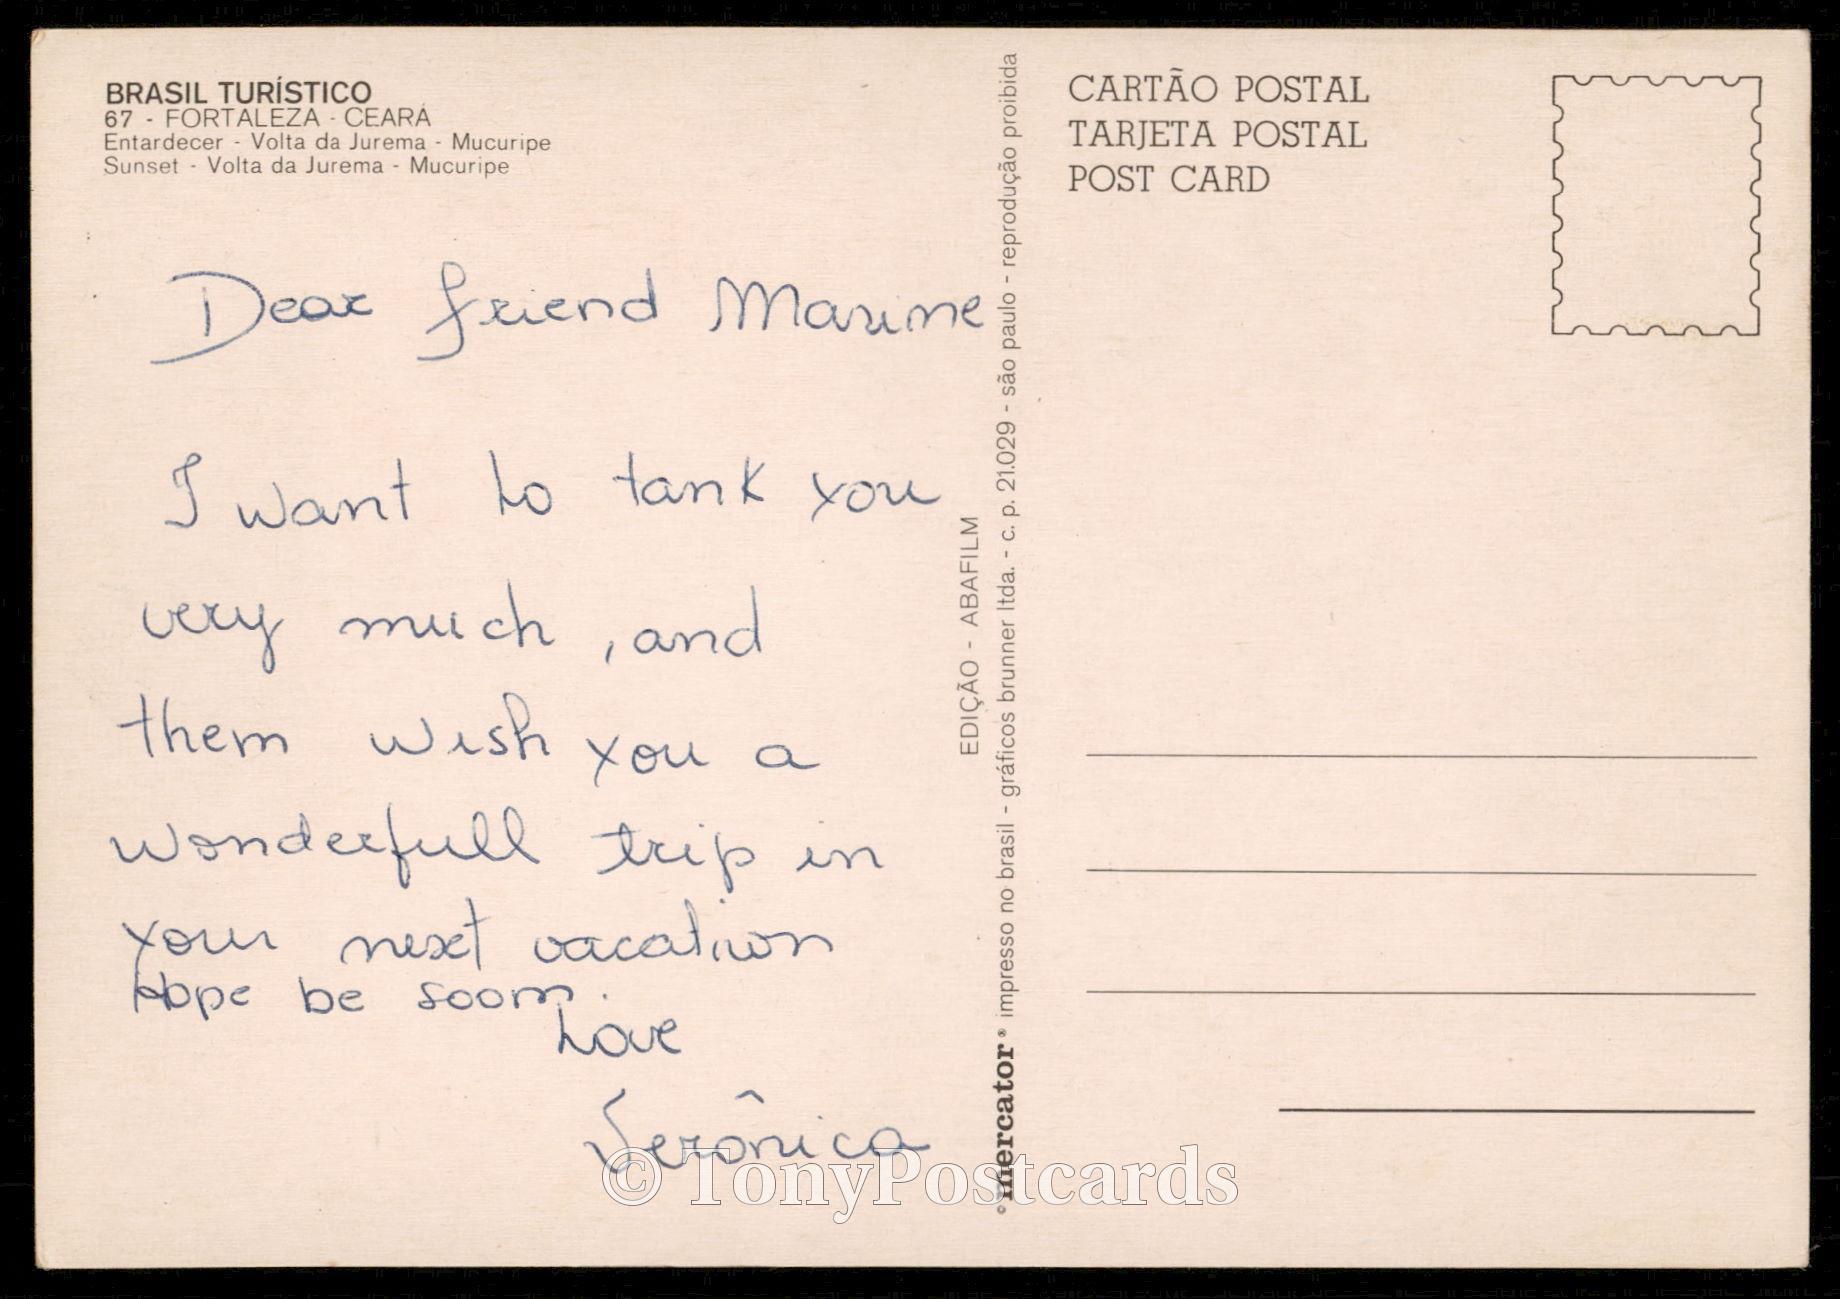 BRASIL TURÍSTICO
67 - FORTALEZA - CEARÁ
Entardecer - Volta da Jurema - Mucuripe
Sunset - Volta da Jurema - Mucuripe
Dear friend Marine
I want to tank you
very much, and
them wish you a
wonderfull trip in
your next vacation
Hope be soom.
Love
Verônica
EDIÇÃO - ABAFILM
© mercator ® impresso no brasil - gráficos brunner ltda. - c. p. 21.029 - são paulo - reprodução proibida
CARTÃO POSTAL
TARJETA POSTAL
POST CARD
© TonyPostcards